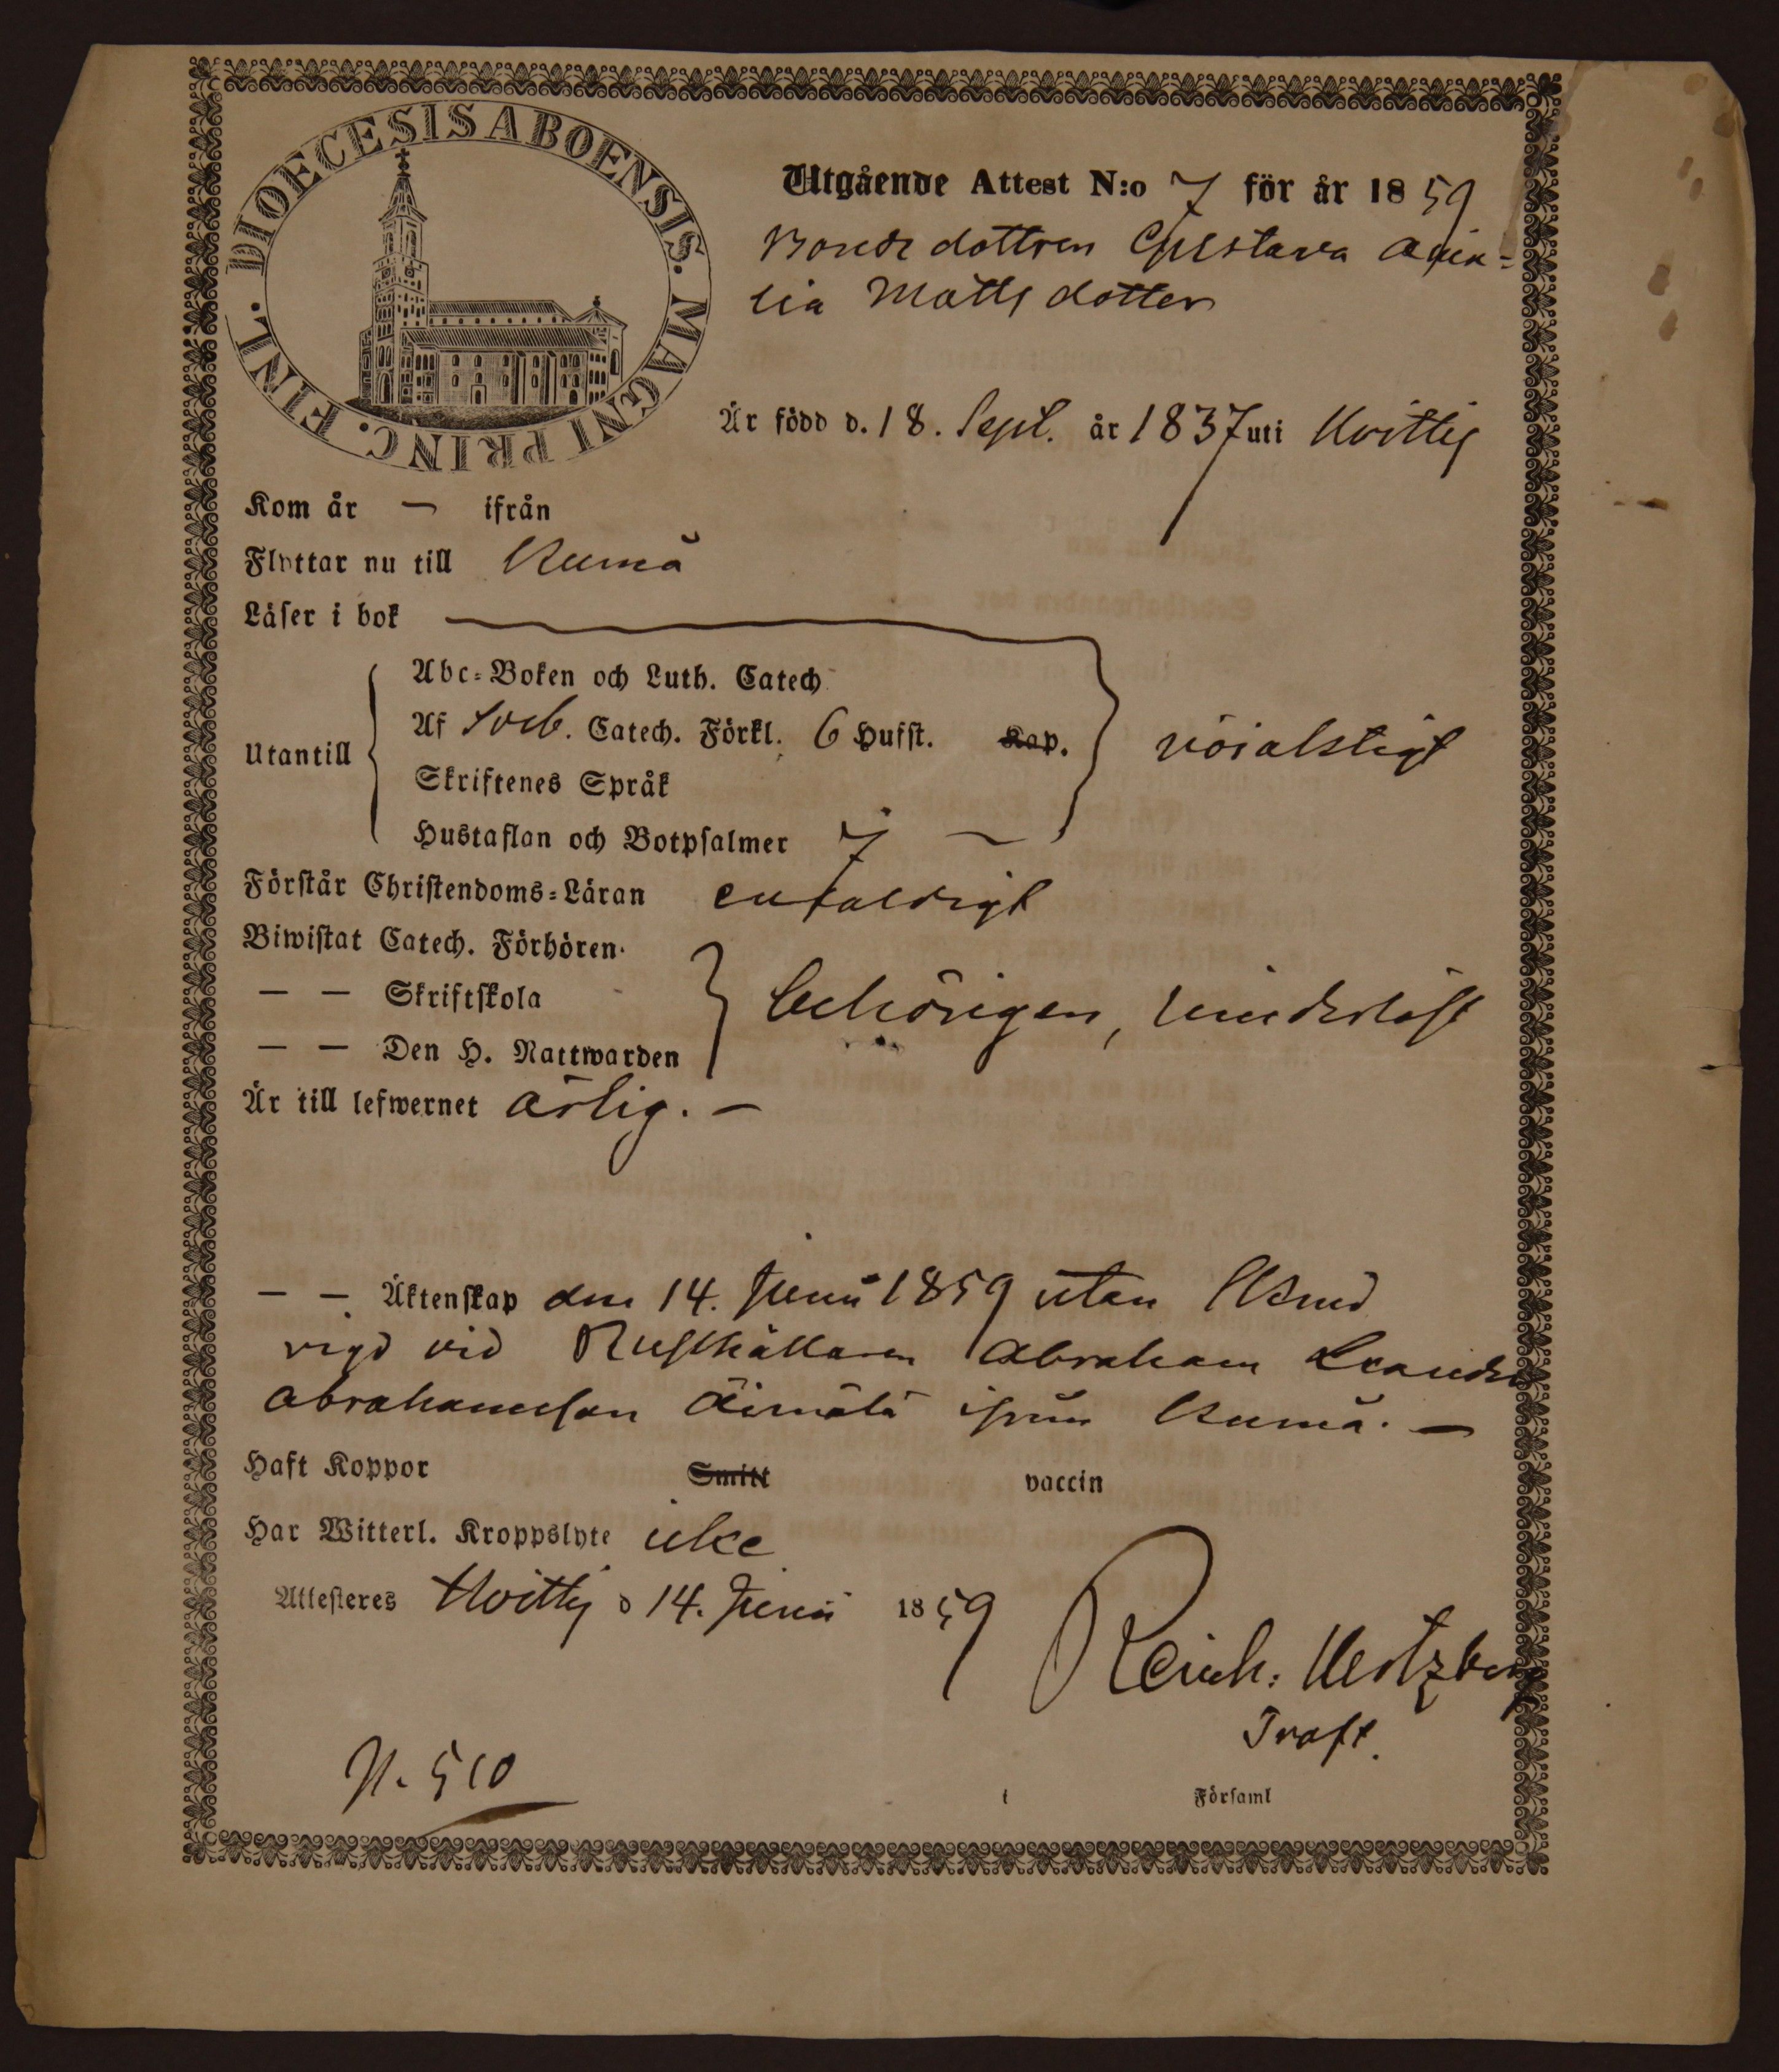 DIOECESIS ABOENSIS. MAGNI PRINC. FINL.
Utgående Attest N:o 7 för år 1859
Bonde dottren Gustava Ama-
lia Matts dotter
Är född d. 18. Sept. år 1837 uti Hvittis
Kom år — ifrån
Flyttar nu till Kumå
Läser i bok
Abc-Boken och Luth. Catech
Af Sveb. Catech. Förkl. 6 Hufst. Kap.
Utantill
Skriftenes Språk
Hustaflan och Botpsalmer 7 —
Förstår Christendoms-Läran enfaldigt
Biwistat Catech. Förhören
— — Skriftskola
behörigen, hinderslöst
— — Den H. Nattwarden
Är till lefwernet ärlig. —
— — Äktenskap den 14. Junii 1859 utan
vigd vid Rusthållaren Abraham Leander
Abrahamsson Äimälä ifrån Kumå. —
Haft Koppor Smitt vaccin
Har Witterl. Kroppslyte icke
Attesteres Hvittis d 14. Junii 1859
Reinh. Hertzberg
Prost.
N. 510
i Församl